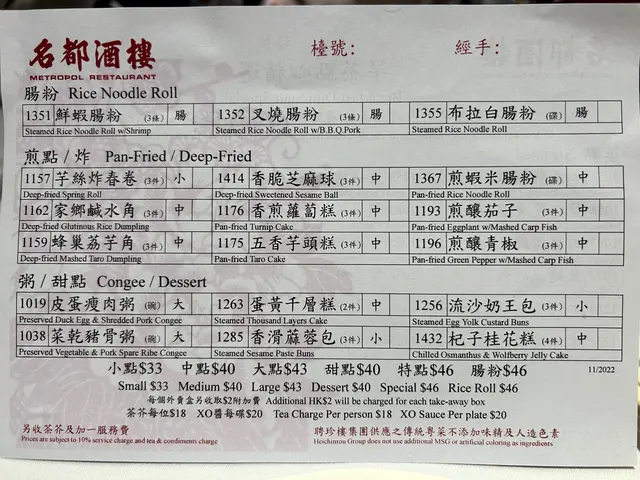 名都酒樓 檯號： 經手：
METROPOL RESTAURANT
腸粉 Rice Noodle Roll
1351 鮮蝦腸粉 (3條) 腸 1352 叉燒腸粉 (3條) 腸 1355 布拉白腸粉 (碟) 腸
Steamed Rice Noodle Roll w/Shrimp Steamed Rice Noodle Roll w/B.B.Q.Pork Steamed Rice Noodle Roll
煎點 / 炸 Pan-Fried / Deep-Fried
1157 芋絲炸春卷 (3件) 小 1414 香脆芝麻球 (3件) 中 1367 煎蝦米腸粉 (碟) 中
Deep-fried Spring Roll Deep-fried Sweetened Sesame Ball Pan-fried Rice Noodle Roll
1162 家鄉鹹水角 (3件) 中 1176 香煎蘿蔔糕 (3件) 中 1193 煎釀茄子 (3件) 中
Deep-fried Glutinous Rice Dumpling Pan-fried Turnip Cake Pan-fried Eggplant w/Mashed Carp Fish
1159 蜂巢荔芋角 (3件) 中 1175 五香芋頭糕 (3件) 中 1196 煎釀青椒 (3件) 中
Deep-fried Mashed Taro Dumpling Pan-fried Taro Cake Pan-fried Green Pepper w/Mashed Carp Fish
粥 / 甜點 Congee / Dessert
1019 皮蛋瘦肉粥 (碗) 大 1263 蛋黃千層糕 (2件) 中 1256 流沙奶王包 (3件) 小
Preserved Duck Egg & Shredded Pork Congee Steamed Thousand Layers Cake Steamed Egg Yolk Custard Buns
1038 菜乾豬骨粥 (碗) 大 1285 香滑蔴蓉包 (3件) 小 1432 杞子桂花糕 (4件) 中
Preserved Vegetable & Pork Spare Ribe Congee Steamed Sesame Paste Buns Chilled Osmanthus & Wolfberry Jelly Cake
小點$33 中點$40 大點$43 甜點$40 特點$46 腸粉$46 11/2022
Small $33 Medium $40 Large $43 Dessert $40 Special $46 Rice Roll $46
每個外賣盒另收取$2附加費 Additional HK$2 will be charged for each take-away box
茶芥每位$18 XO醬每碟$20 Tea Charge Per person $18 XO Sauce Per plate $20
另收茶芥及加一服務費 聘珍樓集團供應之傳統粵菜不添加味精及人造色素
Prices are subject to 10% service charge and tea & condiments charge Heichinrou Group does not use additional MSG or artificial coloring as ingredients